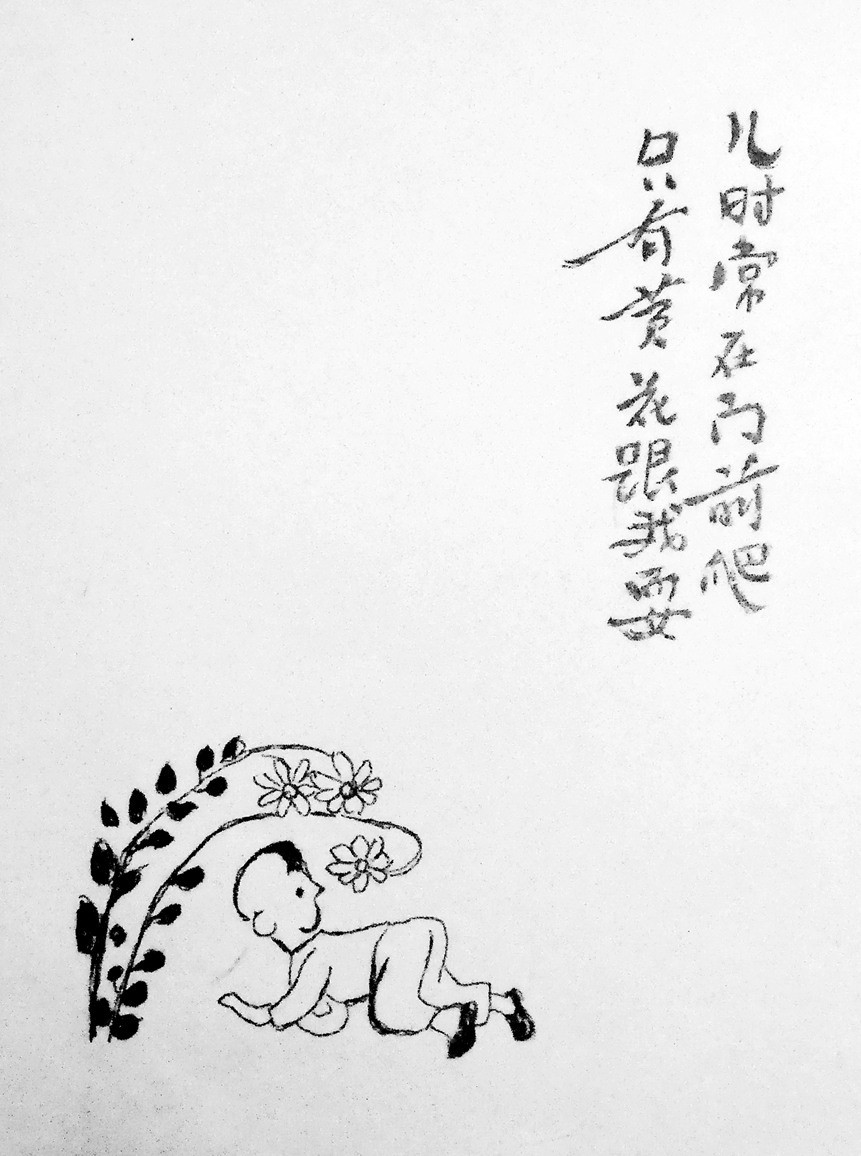 儿时常在门前爬
只看黄花跟我耍